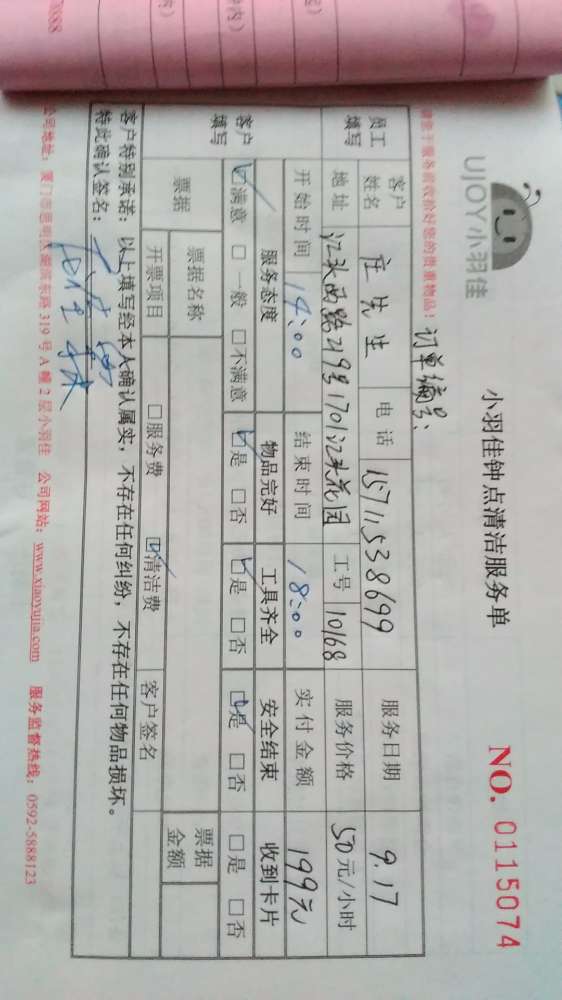 UJOY小羽佳
小羽佳钟点清洁服务单
NO. 0115074
请您于服务前收拾好您的贵重物品!
订单编号:
员工填写
客户姓名 庄先生 电话 15711538699 服务日期 9.17
地址 江头西路219号1701江头花园 工号 10168 服务价格 50元/小时
开始时间 14:00 结束时间 18:00 实付金额 199元
客户填写
服务态度 物品完好 工具齐全 安全结束 收到卡片
☑满意 □一般 □不满意 ☑是 □否 ☑是 □否 ☑是 □否 □是 □否
票据 票据名称 票据金额
开票项目 □服务费 ☑清洁费 客户签名
客户特别承诺:以上填写经本人确认属实,不存在任何纠纷,不存在任何物品损坏。
特此确认签名:
公司地址:厦门市思明区湖滨东路 319 号 A 幢 2 层小羽佳 公司网站:www.xiaoyujia.com 服务监督热线:0592-5888123